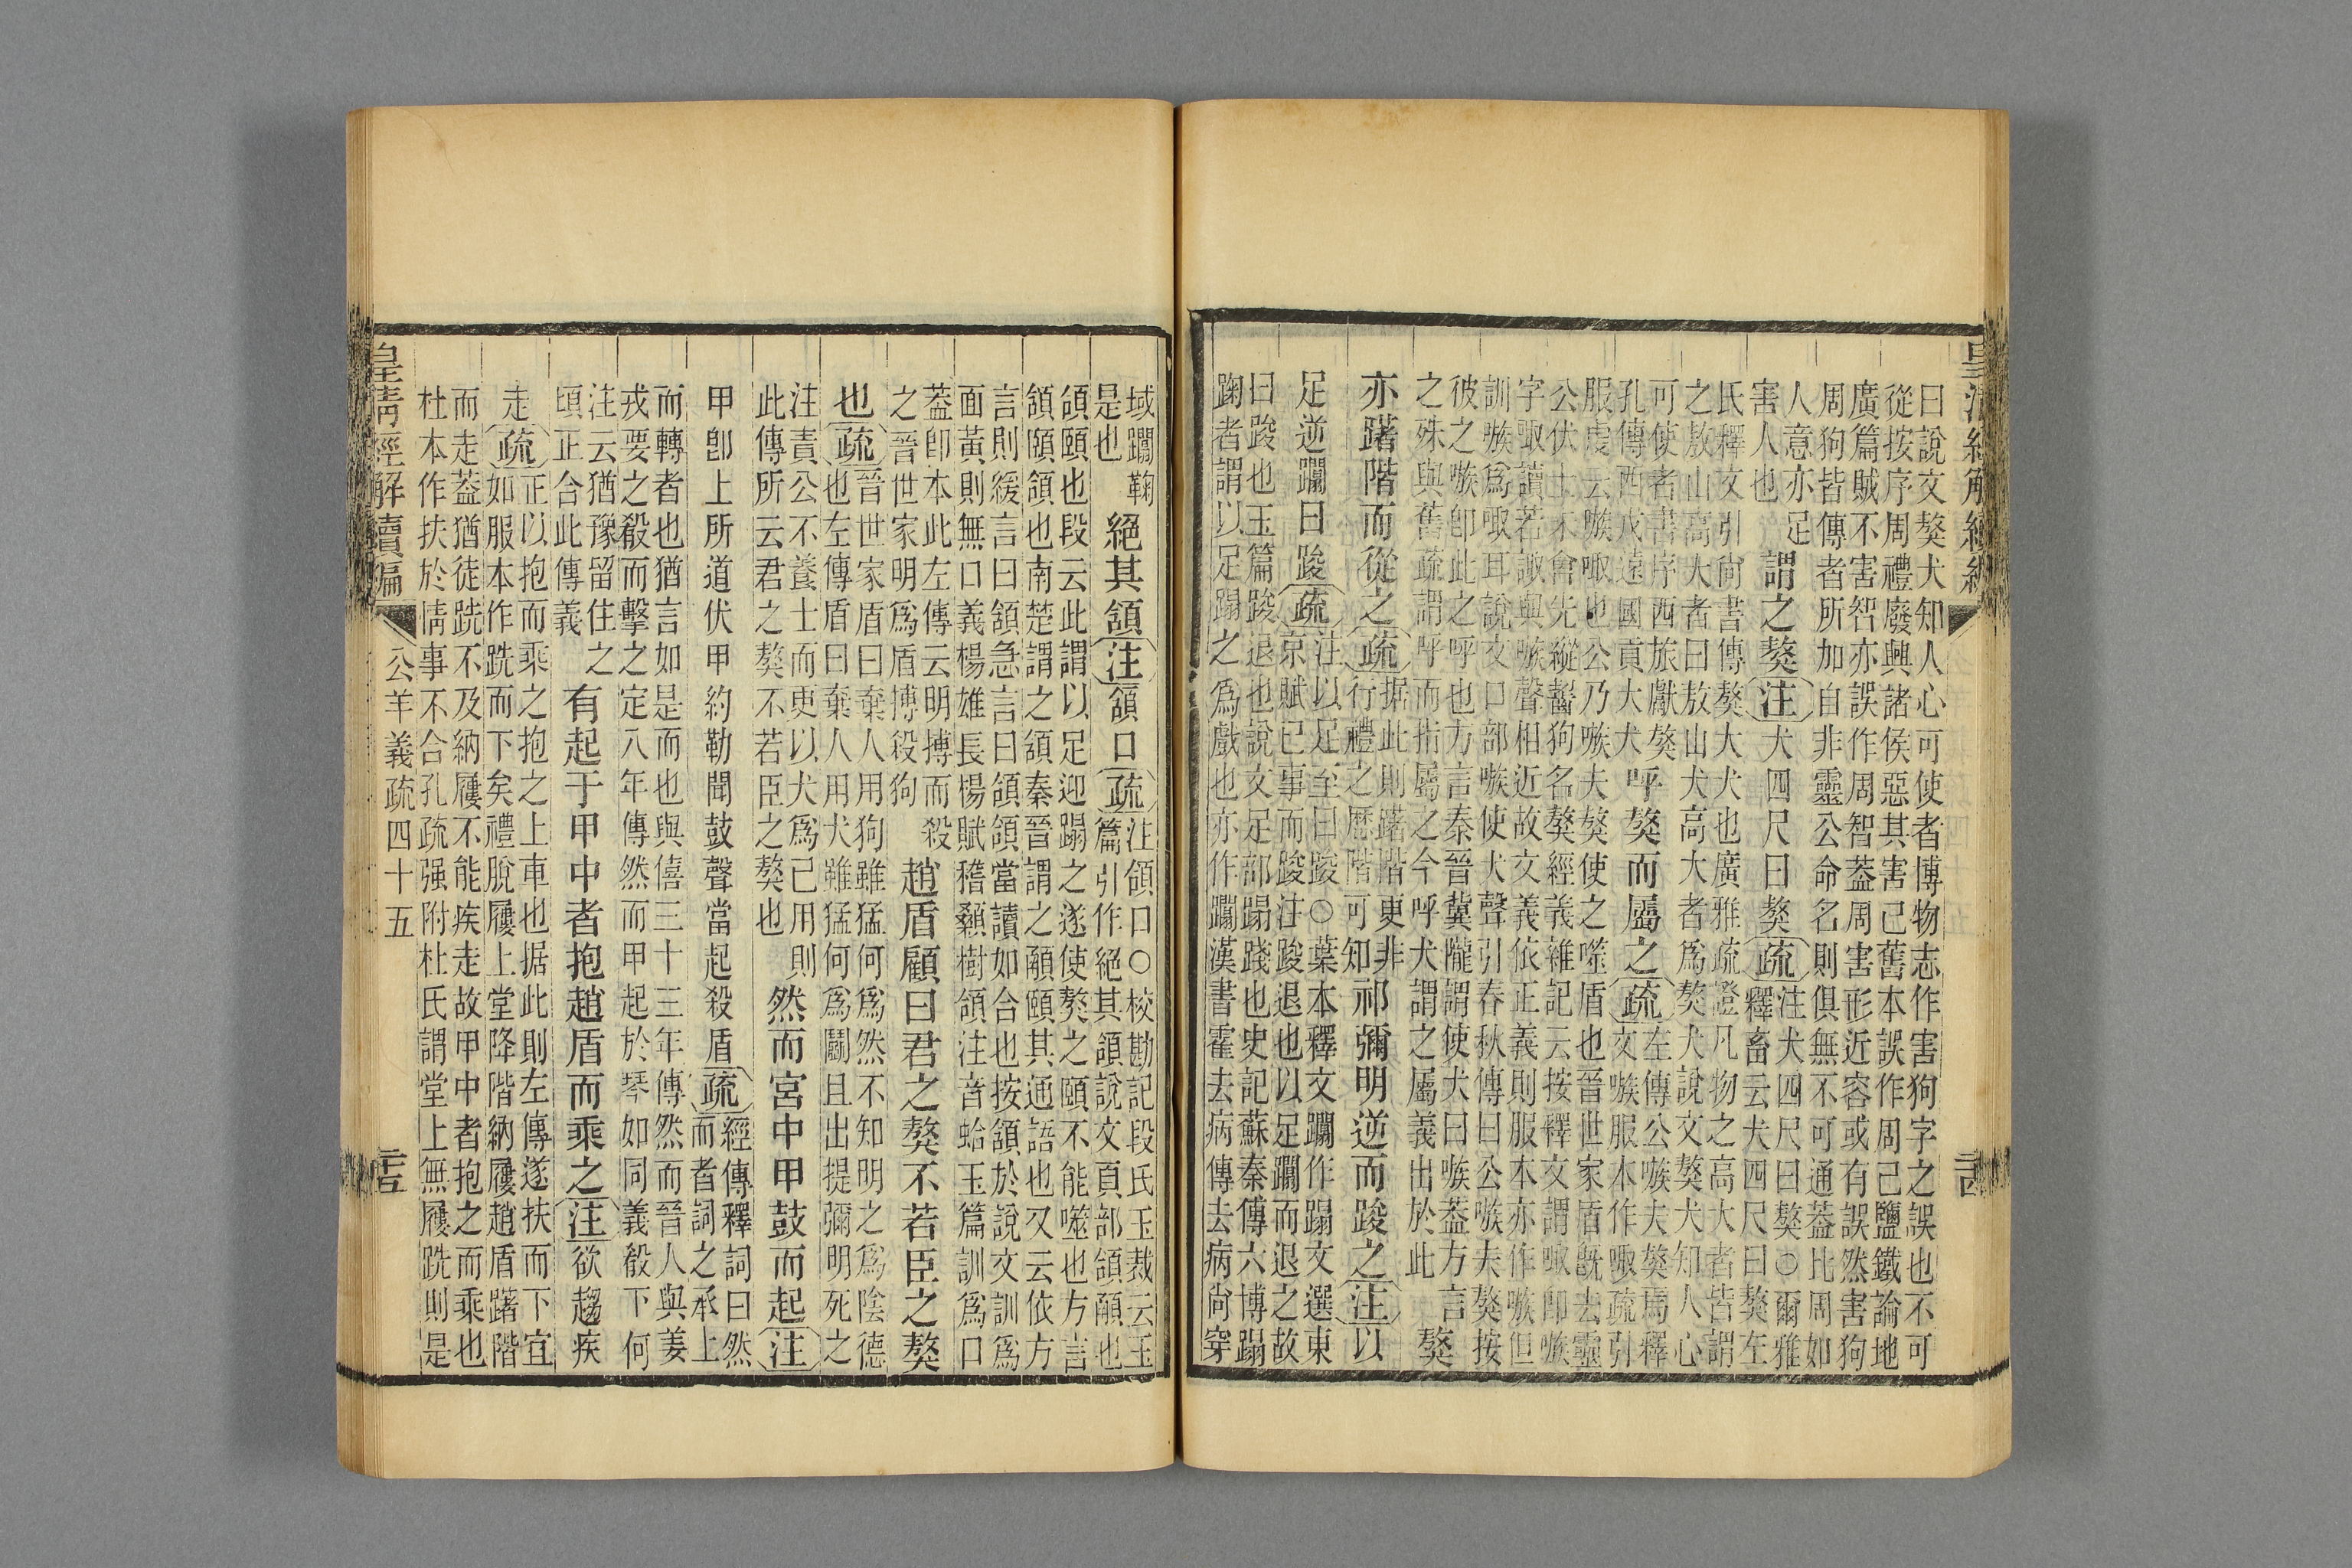 曰說文獒犬知人心可使者博物志作害狗字之誤也不可
從按序周禮廢興諸侯惡其害己舊本誤作周己鹽鐵論地
廣篇賊不害智亦誤作周智蓋周害形近容或有誤然害狗
周狗皆傳者所加自非靈公命名則俱無不可通蓋比周如
人意亦足
害人也
謂之獒注犬四尺曰獒疏
注犬四尺曰獒○爾雅
釋畜云犬四尺曰獒左
氏釋文引尙書傳獒大犬也廣雅疏證凡物之高大者皆謂
之敖山高大者曰敖山犬高大者爲獒犬說文獒犬知人心
可使者書序西旅獻獒
孔傳西戎遠國貢大犬
呼獒而屬之疏
左傳公嗾夫獒焉釋
文嗾服本作㖩疏引
服虔云嗾㖩也公乃嗾夫獒使之噬盾也晉世家盾旣去靈
公伏士未會先縱齧狗名獒經義雜記云按釋文謂㖩卽嗾
字㖩讀若諏與嗾聲相近故文義依正義則服本亦作嗾但
訓嗾爲㖩耳說文口部嗾使犬聲引春秋傳曰公嗾夫獒按
彼之嗾卽此之呼也方言秦晉冀隴謂使犬曰嗾蓋方言
之殊與舊疏謂呼而指屬之今呼犬謂之屬義出於此
獒
亦躇階而從之疏
据此則躇階更非
行禮之歷階可知
祁彌明逆而踆之注以
足逆躝曰踆疏
注以足至曰踆○葉本釋文躝作蹋文選東
京賦已事而踆注踆退也以足躝而退之故
曰踆也玉篇踆退也說文足部蹋踐也史記蘇秦傳六博蹋
踘者謂以足蹋之爲戲也亦作躝漢書霍去病傳去病尙穿
域躝鞠
是也
絕其頷注頷口疏
注頷口○校勘記段氏玉裁云玉
篇引作絕其頷說文頁部頷顄也
頷頤也段云此謂以足迎蹋之遂使獒之頤不能噬也方言
頷頤頷也南楚謂之頷秦晉謂之顄頤其通語也又云依方
言則緩言曰頷急言曰頷頷當讀如合也按頷於說文訓爲
面黃則無口義楊雄長楊賦稽顙樹頷注音蛤玉篇訓爲口
蓋卽本此左傳云明搏而殺
之晉世家明爲盾博殺狗
趙盾顧曰君之獒不若臣之獒
也疏
晉世家盾曰棄人用狗雖猛何爲然不知明之爲陰德
也左傳盾曰棄人用犬雖猛何爲鬬且出提彌明死之
注責公不養士而更以犬爲己用則
此傳所云君之獒不若臣之獒也
然而宮中甲鼓而起注
甲卽上所道伏甲約勒聞鼓聲當起殺盾疏
經傳釋詞曰然
而者詞之承上
而轉者也猶言如是而也與僖三十三年傳然而晉人與姜
戎要之殽而擊之定八年傳然而甲起於琴如同義殽下何
注云猶豫留住之
頃正合此傳義
有起于甲中者抱趙盾而乘之注欲趨疾
走疏
正以抱而乘之抱之上車也据此則左傳遂扶而下宜
如服本作跣而下矣禮脫屨上堂降階納屨趙盾躇階
而走蓋猶徒跣不及納屨不能疾走故甲中者抱之而乘也
杜本作扶於情事不合孔疏强附杜氏謂堂上無屨跣則是
皇淸經解續編
公羊義疏四十五